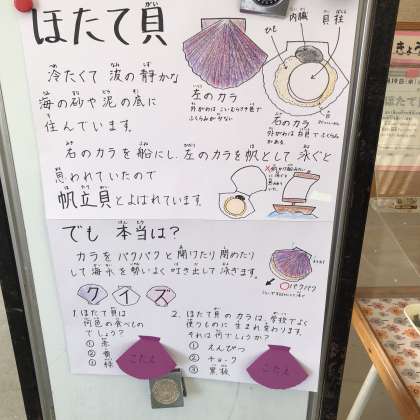 ほたて貝
冷たくて 波の静かな
海の砂や泥の底に
住んでいます。
ひも
内臓
貝柱
左のカラ
外がわはこいむらさき色で
ふくらみが少ない
右のカラ
外がわは白色でふくらみ
がある
右のカラを船にし、左のカラを帆として 泳ぐと
思われていたので
帆立貝とよばれています。
でも 本当は?
カラをパクパクと開けたり閉めたり
して 海水を勢いよく吐き出して泳ぎます。
パクパク
クイズ
1. ほたて貝は
何色の食べもの
でしょう?
① 赤
② 黄
③ 緑
2. ほたて貝のカラは、学校でよく
使うものに生まれ変わります。
それは何でしょうか?
① えんぴつ
② チョーク
③ 黒板
こたえ
こたえ